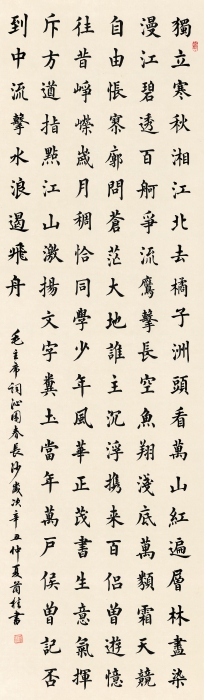 獨立寒秋湘江北去橘子洲頭看萬山紅遍層林盡染
漫江碧透百舸爭流鷹擊長空魚翔淺底萬類霜天競
自由悵寥廓問蒼茫大地誰主沉浮攜来百侶曾遊憶
往昔崢嶸歲月稠恰同學少年風華正茂書生意氣揮
斥方遒指點江山激揚文字糞土當年萬戶侯曾記否
到中流擊水浪遏飛舟
毛主席詞沁園春長沙歲次辛丑仲夏桂書